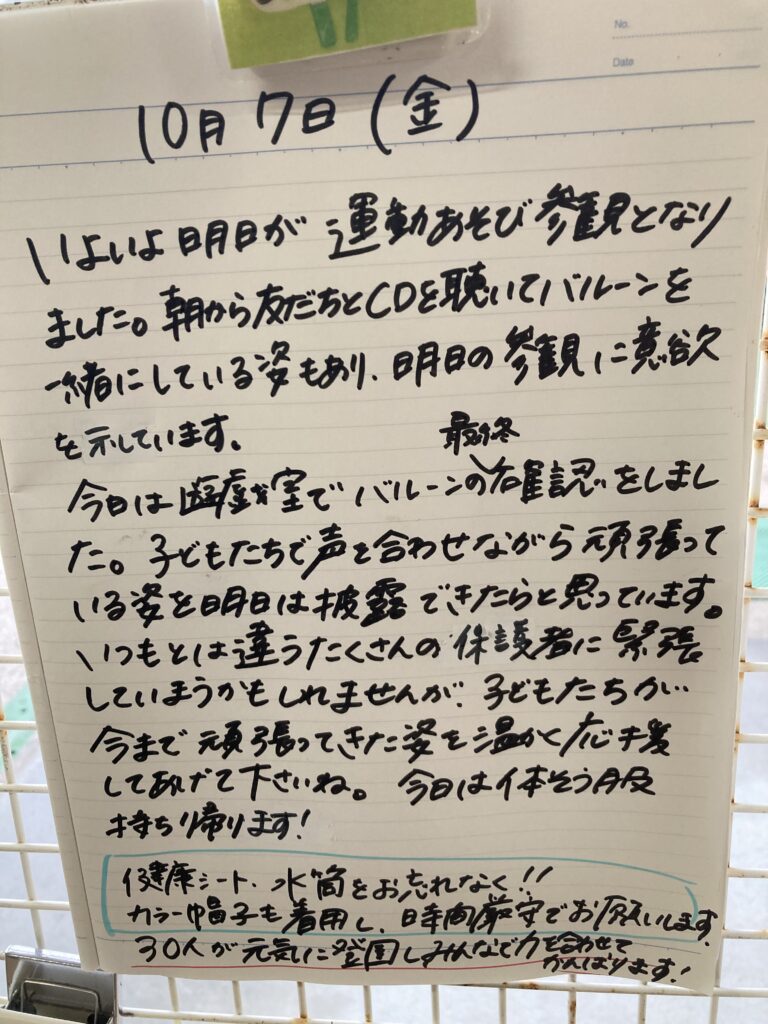 No.
Date
10月7日(金)
いよいよ明日が運動あそび参観となり
ました。朝から友だちとCDを聴いてバルーンを
一緒にしている姿もあり、明日の参観に意欲
を示しています。
最終
今日は遊戯室でバルーンの確認をしまし
た。子どもたちで声を合わせながら頑張って
いる姿を明日は披露できたらと思っています。
いつもとは違うたくさんの保護者に緊張
していまうかもしれませんが、子どもたちが
今まで頑張ってきた姿を温かく応援
してあげて下さいね。今日は体そう服
持ち帰ります!
健康シート、水筒をお忘れなく!!
カラー帽子も着用し、時間厳守でお願いします。
30人が元気に登園しみんなで力を合わせて
がんばります!